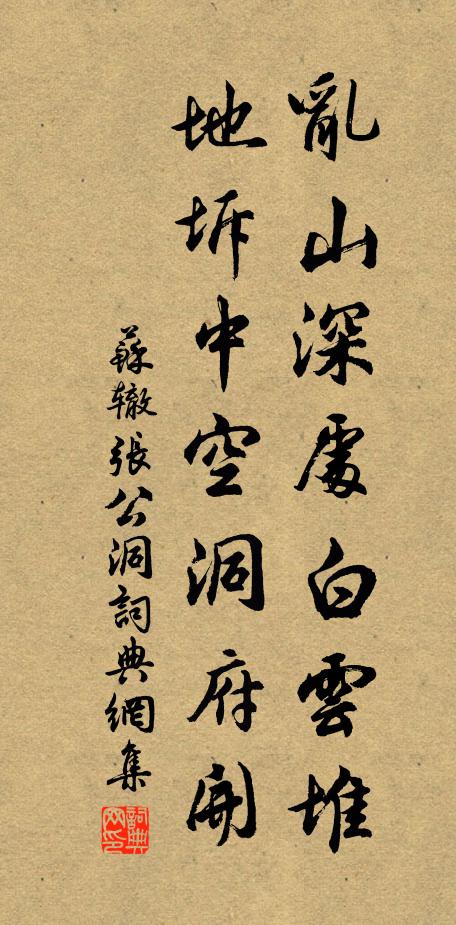 亂山深處白雲堆
地坼中空洞府開
蘇轍張公洞詞典網集
詞典网印